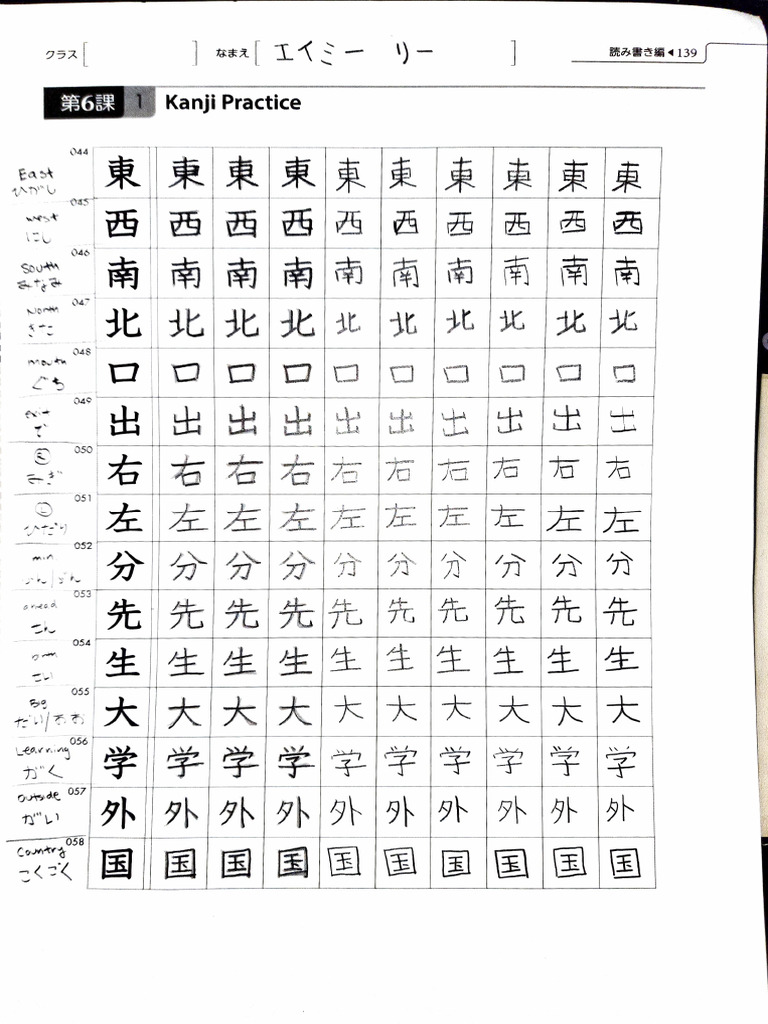 クラス[ ] なまえ[エイミー リー] 読み書き編◀139
第6課 1 Kanji Practice
044 East ひがし 東 東 東 東 東 東 東 東 東 東
045 west にし 西 西 西 西 西 西 西 西 西 西
046 South みなみ 南 南 南 南 南 南 南 南 南 南
047 North きた 北 北 北 北 北 北 北 北 北 北
048 mouth ぐち 口 口 口 口 口 口 口 口 口 口
049 exit で 出 出 出 出 出 出 出 出 出 出
050 みぎ 右 右 右 右 右 右 右 右 右 右
051 ひだり 左 左 左 左 左 左 左 左 左 左
052 min ふん/ぷん 分 分 分 分 分 分 分 分 分 分
053 ahead 先 先 先 先 先 先 先 先 先 先
054 生 生 生 生 生 生 生 生 生 生
055 Big だい/おお 大 大 大 大 大 大 大 大 大 大
056 Learning がく 学 学 学 学 学 学 学 学 学 学
057 outside がい 外 外 外 外 外 外 外 外 外 外
058 Country こくごく 国 国 国 国 国 国 国 国 国 国